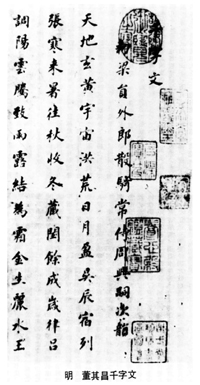 字文
梁員外郎散騎常侍周興嗣次韻
天地玄黃宇宙洪荒日月盈昃辰宿列
張寒来暑往秋收冬藏閏餘成歲律吕
調陽雲騰致雨露結為霜金生麗水玉
明 董其昌千字文